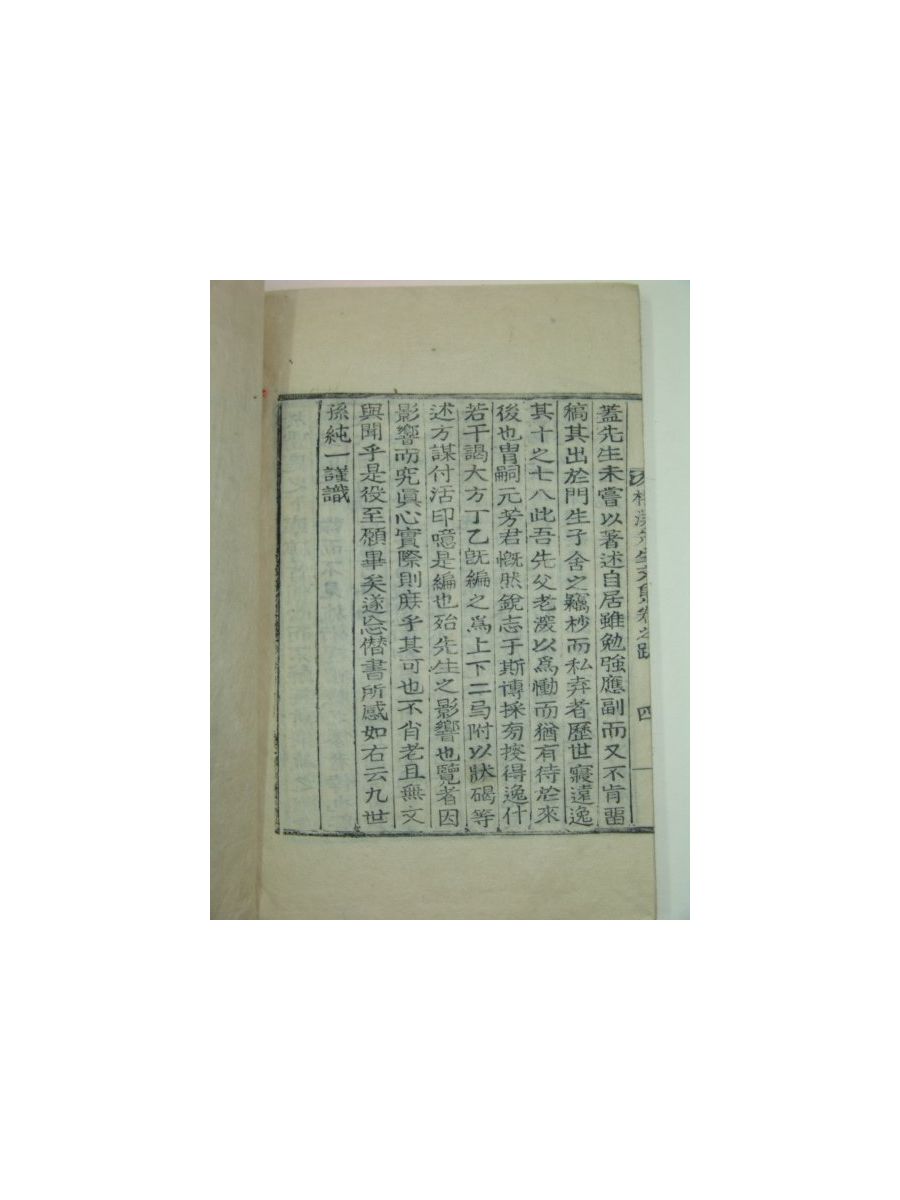 蓋先生未嘗以著述自居雖勉強應副而又不肯畱
稿其出於門生子舍之竊抄而私弆者歷世寢遠逸
其十之七八此吾先父老深以爲慟而猶有待於來
後也胄嗣元芳君慨然銳志于斯博採旁搜得逸什
若干謁大方丁乙旣編之爲上下二弓附以狀碣等
述方謀付活印噫是編也殆先生之影響也覽者因
影響而究眞心實際則庶乎其可也不肖老且無文
與聞乎是役至願畢矣遂忘僭書所感如右云九世
孫純一謹識
先生文集卷之跋 四